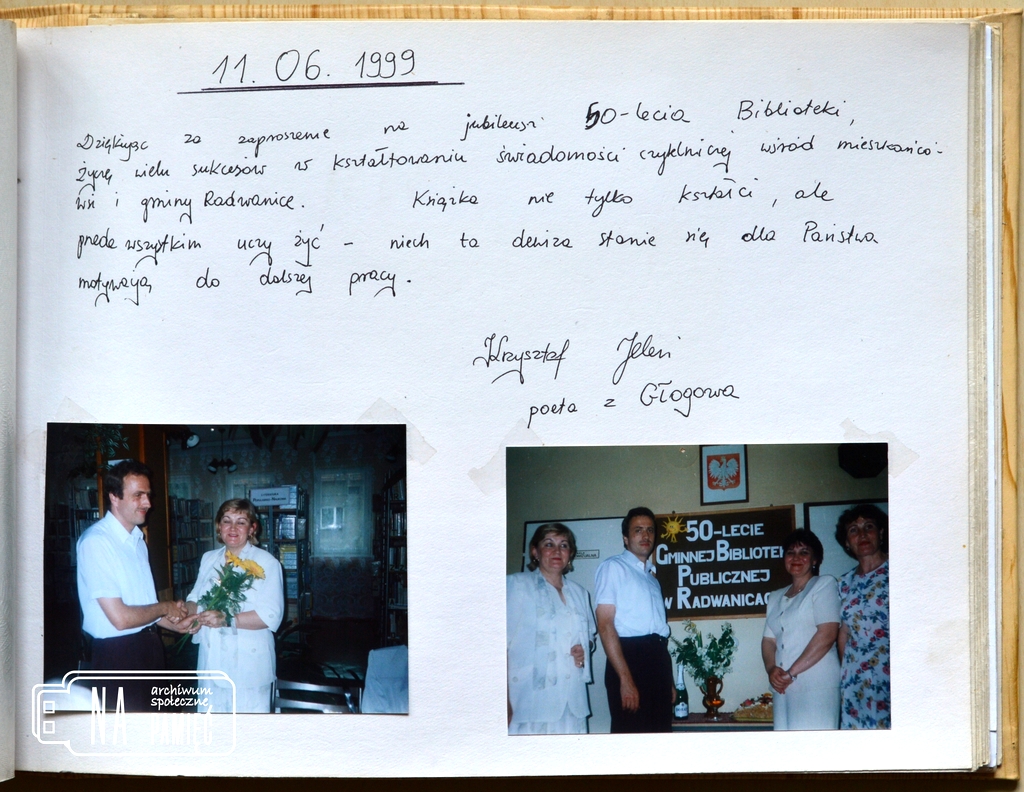 11. 06. 1999
Dziękując za zaproszenie na jubileusz 50-lecia Biblioteki,
życzę wielu sukcesów w kształtowaniu świadomości czytelniczej wśród mieszkańców
wsi i gminy Radwanice. Książka nie tylko kształci, ale
przede wszystkim uczy żyć - niech ta dewiza stanie się dla Państwa
motywacją do dalszej pracy.
Krzysztof Jeleń
poeta z Głogowa
50-LECIE
GMINNEJ BIBLIOTEK
PUBLICZNEJ
W RADWANICAC
NA PAMIĘĆ
archiwum
społeczne